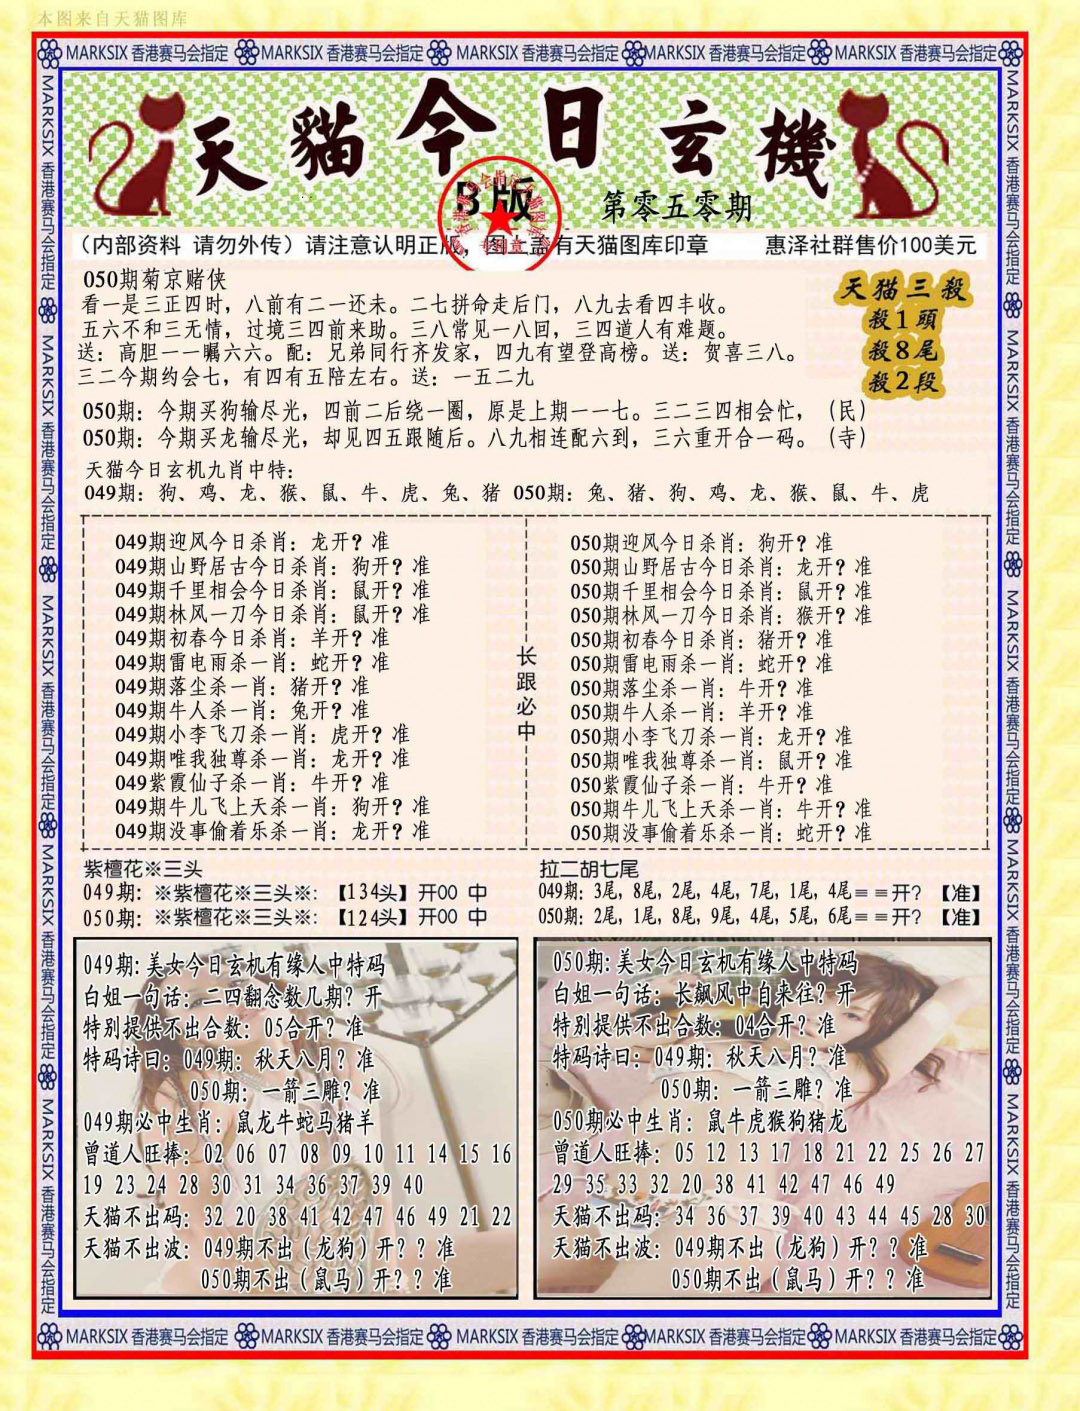 本图来自天猫图库
MARKSIX 香港赛马会指定 MARKSIX 香港赛马会指定 MARKSIX 香港赛马会指定 MARKSIX 香港赛马会指定 MARKSIX 香港赛马会指定
天貓今日玄機
B版
第零五零期
（内部资料 请勿外传）请注意认明正版，图上盖有天猫图库印章 惠泽社群售价100美元
050期菊京赌侠
看一是三正四时，八前有二一还未。二七拼命走后门，八九去看四丰收。
五六不和三无情，过境三四前来助。三八常见一八回，三四道人有难题。
送：高胆一一嘱六六。配：兄弟同行齐发家，四九有望登高榜。送：贺喜三八。
三二今期约会七，有四有五陪左右。送：一五二九
天猫三殺
殺1頭
殺8尾
殺2段
050期：今期买狗输尽光，四前二后绕一圈，原是上期一一七。三二三四相会忙，（民）
050期：今期买龙输尽光，却见四五跟随后。八九相连配六到，三六重开合一码。（寺）
天猫今日玄机九肖中特：
049期：狗、鸡、龙、猴、鼠、牛、虎、兔、猪 050期：兔、猪、狗、鸡、龙、猴、鼠、牛、虎
049期迎风今日杀肖：龙开？准
049期山野居古今日杀肖：狗开？准
049期千里相会今日杀肖：鼠开？准
049期林风一刀今日杀肖：鼠开？准
049期初春今日杀肖：羊开？准
049期雷电雨杀一肖：蛇开？准
049期落尘杀一肖：猪开？准
049期牛人杀一肖：兔开？准
049期小李飞刀杀一肖：虎开？准
049期唯我独尊杀一肖：龙开？准
049紫霞仙子杀一肖：牛开？准
049期牛儿飞上天杀一肖：狗开？准
049期没事偷着乐杀一肖：龙开？准
长跟必中
050期迎风今日杀肖：狗开？准
050期山野居古今日杀肖：龙开？准
050期千里相会今日杀肖：鼠开？准
050期林风一刀今日杀肖：猴开？准
050期初春今日杀肖：猪开？准
050期雷电雨杀一肖：蛇开？准
050期落尘杀一肖：牛开？准
050期牛人杀一肖：羊开？准
050期小李飞刀杀一肖：龙开？准
050期唯我独尊杀一肖：鼠开？准
050紫霞仙子杀一肖：牛开？准
050期牛儿飞上天杀一肖：牛开？准
050期没事偷着乐杀一肖：蛇开？准
紫檀花※三头
049期：※紫檀花※三头※:【134头】开00 中
050期：※紫檀花※三头※:【124头】开00 中
拉二胡七尾
049期：3尾，8尾，2尾，4尾，7尾，1尾，4尾＝＝开？【准】
050期：2尾，1尾，8尾，9尾，4尾，5尾，6尾＝＝开？【准】
049期:美女今日玄机有缘人中特码
白姐一句话：二四翻念数几期？开
特别提供不出合数：05合开？准
特码诗曰：049期：秋天八月？准
050期：一箭三雕？准
049期必中生肖：鼠龙牛蛇马猪羊
曾道人旺捧：02 06 07 08 09 10 11 14 15 16
19 23 24 28 30 31 34 36 37 39 40
天猫不出码：32 20 38 41 42 47 46 49 21 22
天猫不出波：049期不出（龙狗）开？？准
050期不出（鼠马）开？？准
050期:美女今日玄机有缘人中特码
白姐一句话：长飙风中自来往？开
特别提供不出合数：04合开？准
特码诗曰：049期：秋天八月？准
050期：一箭三雕？准
050期必中生肖：鼠牛虎猴狗猪龙
曾道人旺捧：05 12 13 17 18 21 22 25 26 27
29 35 33 32 20 38 41 42 47 46 49
天猫不出码：34 36 37 39 40 43 44 45 28 30
天猫不出波：049期不出（龙狗）开？？准
050期不出（鼠马）开？？准
MARKSIX 香港赛马会指定 MARKSIX 香港赛马会指定 MARKSIX 香港赛马会指定 MARKSIX 香港赛马会指定 MARKSIX 香港赛马会指定
MARKSIX 香港赛马会指定 MARKSIX 香港赛马会指定 MARKSIX 香港赛马会指定 MARKSIX 香港赛马会指定 MARKSIX 香港赛马会指定
MARKSIX 香港赛马会指定 MARKSIX 香港赛马会指定 MARKSIX 香港赛马会指定 MARKSIX 香港赛马会指定 MARKSIX 香港赛马会指定